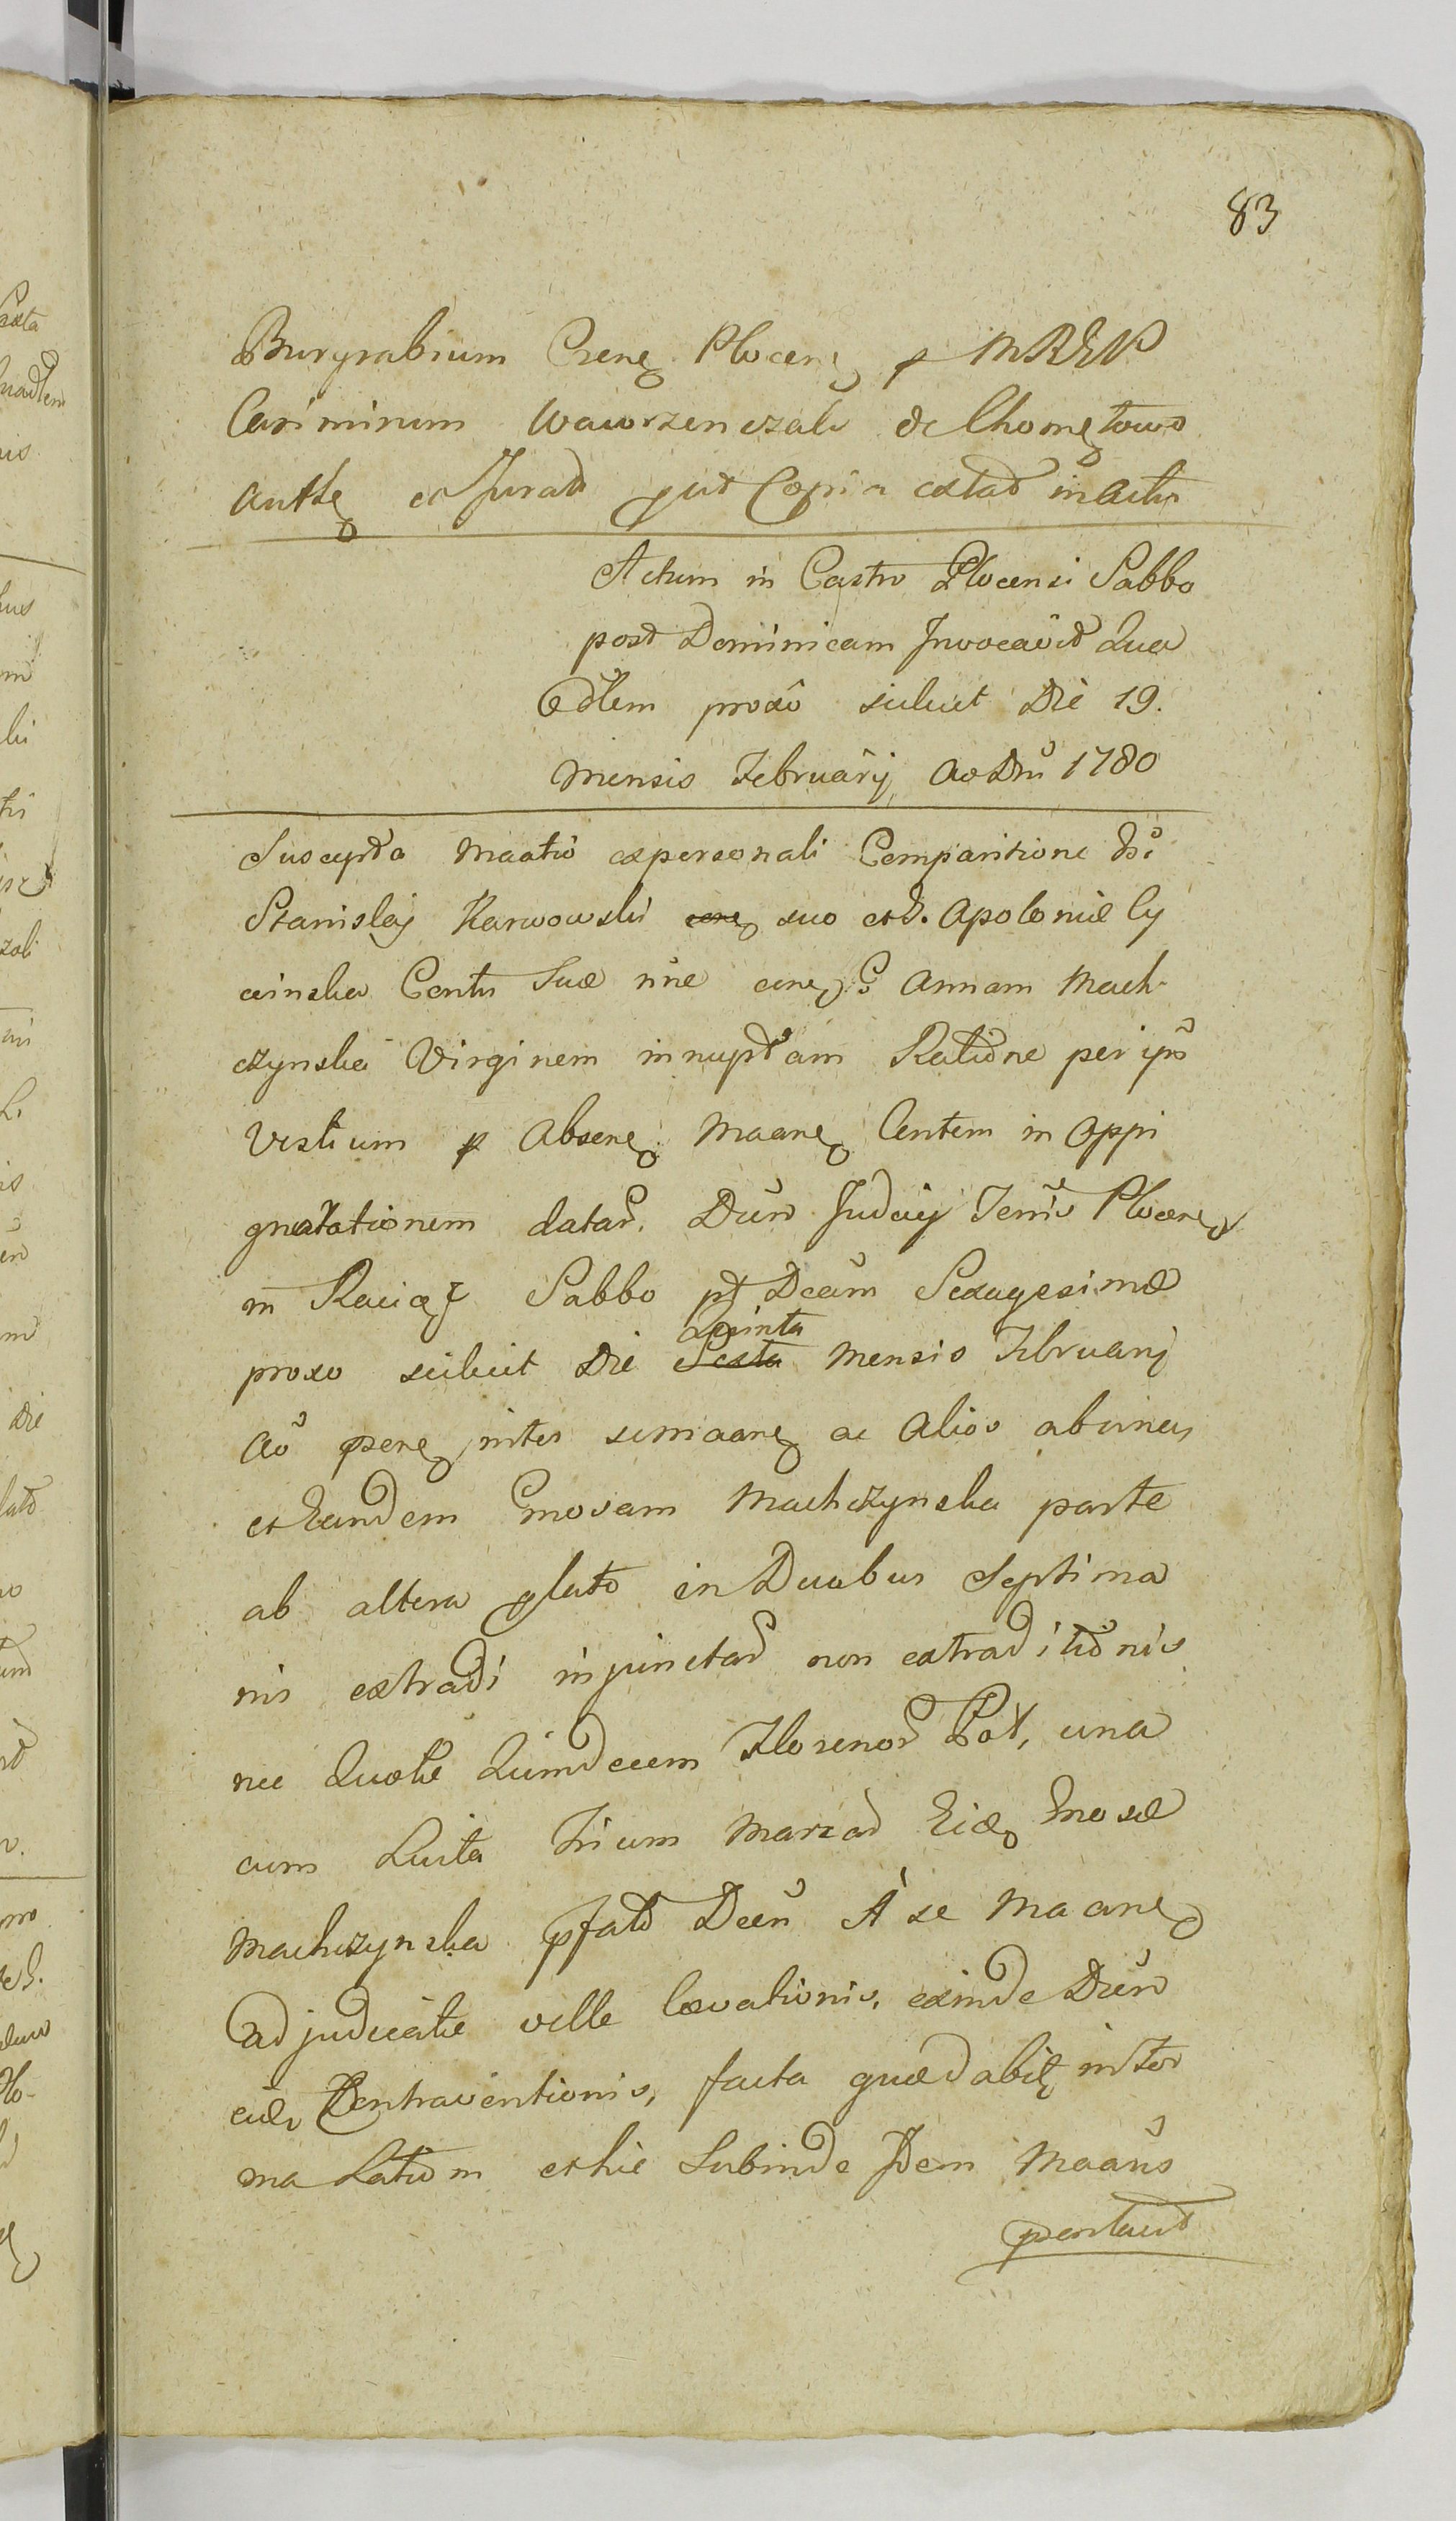 83
Burgrabium Crenę Plocenę p MREP
Casimirum Wawrzenczali de Chomętowo
autħę et Jurat put Copia extat in actu
Actum in Castro Plocensi Sabbo
post Dominicam Invocavit Qua
Gdlem proxo scilicet Die 19.
Mensis Februarij Ao Dni 1780
Suscepta Maatio expersonali Comparitione
Stanislaj Karwowski suo et G. Apoloniæ Cy
cinska Contu Suæ nne Annam Mach-
czynska Virginem innuptam Ratione per ipm
Vestium p Absenę Maanę Centem in Oppi
gnorationem datar. Dun Judicij Terris Plocenę
in Raciąż Sabbo pt Dcam Sexagesimæ
proxo scilicet Die Quinta Sexta Mensis Februarij
ao psenę inter semaanę ac Alios abunen
et Eandem Gnosam Machczynska parte
ab altera plato in Duabus Septima
nis extradi injunctar non extraditionis
nec Quotæ Quindecem Florenor Pol, una
cum Luita Trium Marcar Eidę Gnosæ
Machczynska pfato Dcen A se Maanę
adjudicatæ velle Levationis, exinde Dun
Contraventionis, facta quædabil inter
ma Lation et hic Subinde Idem Maans
pentavit